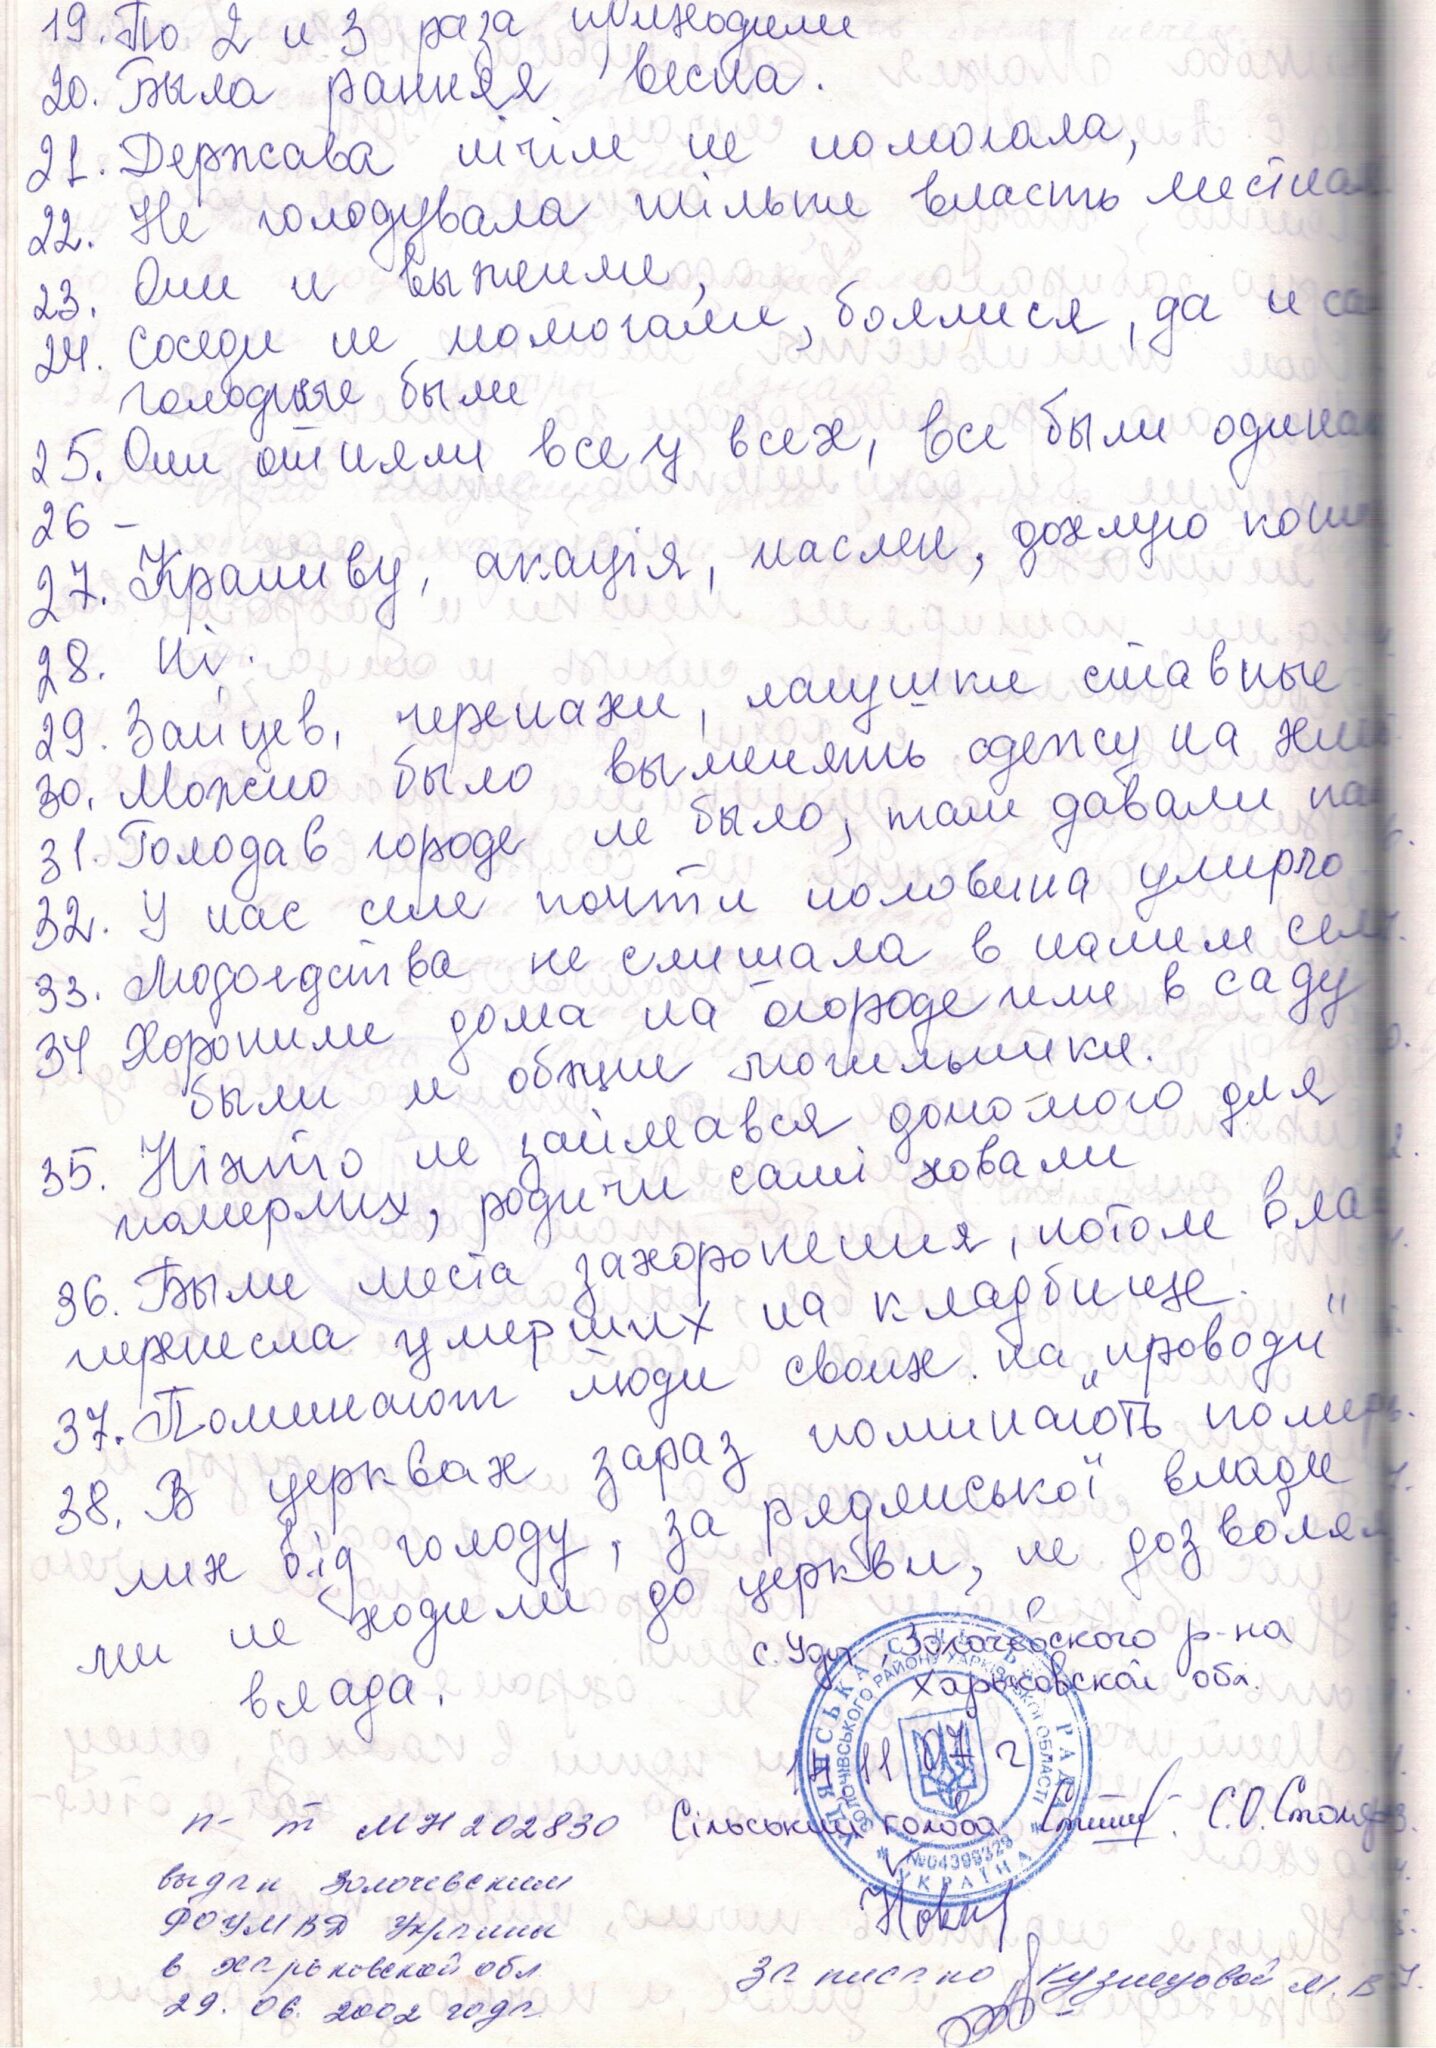 19. По 2 и 3 раза приходили
20. Была ранняя весна.
21. Держава нічім не помогала,
22. Не голодувала тільки власть местная
23. Они и выжили,
24. Соседи не помогали, боялися, да и са
голодные были
25. Они отняли все у всех, все были одинак
26 -
27. Крапиву, акація, паслен, дохлую кош
28. Ні.
29. Зайцев, черепахи, лапушки ставные
30. Можно было выменять одежу на
31. Голода в городе не было, там давали па
32. У нас селе почти половина умирло
33. Людоедства не слишала в нашим селе.
34 Хоронили дома на огороде или в саду
были и общие могильники.
35. Ніхто не займався допомого для
померлих, родичи самі ховали
36. Были места захоронения, потом вла
перенесла умерших на кладбище.
37. Поминают люди своих на „проводи"
38. В церквах зараз поминають помер
лих від голоду, за рядянської влади
ми не ходили до церкви, не дозволял
влада.
с. Уды, Золочевского р-на
Харьковской обл.
11 07 г
п-т МН 202830 Сільський голова С.О.
выдан Золочевским
РОУМВД Украины
в Харьковской обл
29. 06. 2002 года
записано Кузнецовой М. В
СЬКА РАДА
ЗОЛОЧІВСЬКОГО РАЙОНУ ХАРКІВСЬКОЇ ОБЛАСТІ
№04399329
* УКРАЇНА *